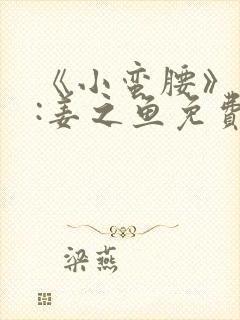 《小蛮腰》
:姜之鱼免費
梁燕